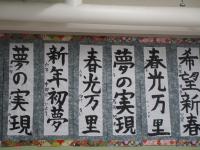 希望新春
春光万里
夢の実現
春光万里
新年初夢
夢の実現